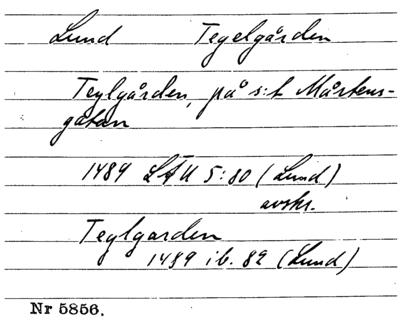 Lund Tegelgården
Teylgården, på s:t Mårtens-
gatan
1489 LÄU 5:80 (Lund)
avskr.
Teylgarden
1489 ib. 82 (Lund)
Nr 5856.